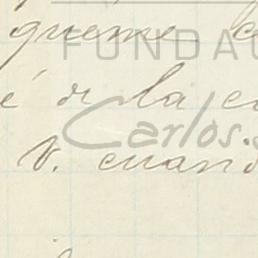 queme
FUNDA
é di la
Carlos.
V. cuand